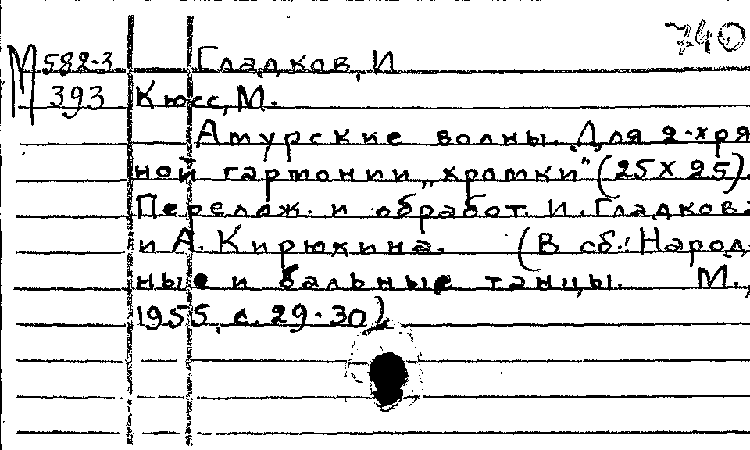 740
М 582-3 Гладков, И
393 Кюсс, М.
Амурские волны. Для 2-хря
ной гармонии „хромки" (25 X 25).
Перелож. и обработ. И. Гладкова
и А. Кирюхина. (В сб.: Народ
ные и бальные танцы. М.,
1955, с. 29-30)